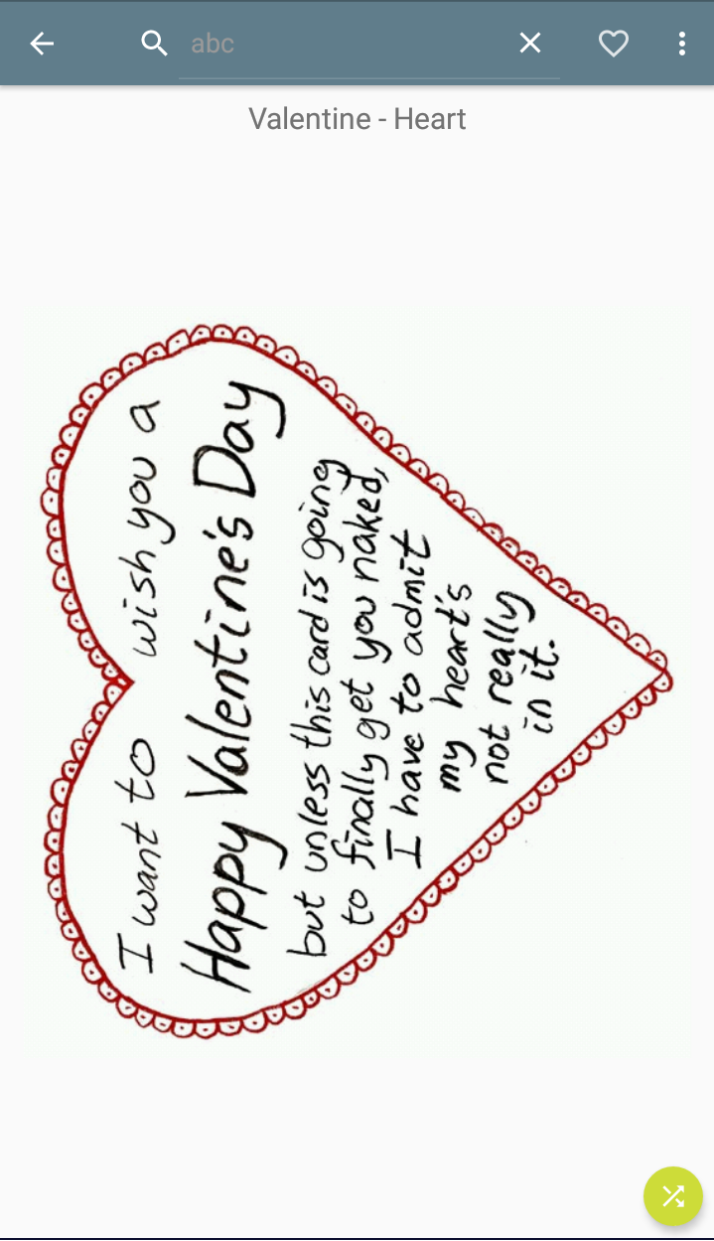 abc
Valentine - Heart
I want to wish you a
Happy Valentine's Day
but unless this card is going
to finally get you naked,
I have to admit
my heart's
not really
in it.